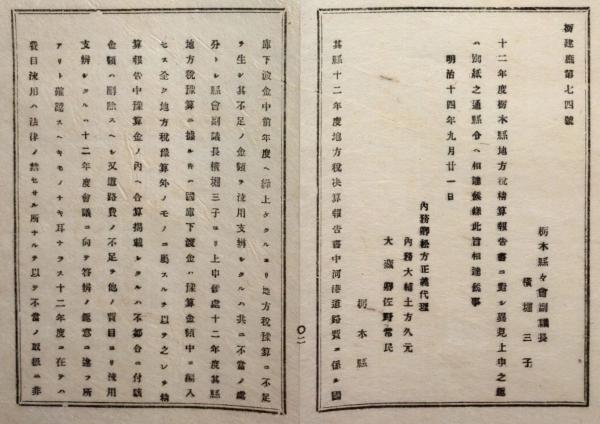 栃建應第七四號
栃木縣々會副議長
横堀三子
十二年度栃木縣地方税精算報告書ニ對シ異見上申之趣
ハ別紙之通縣令ヘ相達候條此旨相達候事
明治十四年九月廿一日
內務卿松方正義代理
內務大輔土方久元
大藏卿佐野常民
栃木縣
其縣十二年度地方税決算報告書中河港道路費ニ係ル國
〇二
庫下渡金中前年度ヘ繰上ケタルヨリ地方税豫算ニ不足
ヲ生シ其不足ノ金額ヲ流用支辨シタルハ共ニ不當ノ處
分トシ縣會副議長横堀三子ヨリ上申候處十二年度其縣
地方税豫算ニ據レハ國庫下渡金ハ豫算金額中ニ編入
セス全ク地方税豫算外ノモノニ屬スルヲ以テ之レヲ精
算報告中豫算金ノ內ヘ合算揭載シタルハ不都合ニ付該
金額ハ削除スヘシ又道路費ノ不足ヲ他ノ費目ヨリ流用
支辨シタルハ十二年度會議ニ向テ答辨ノ趣意ニ違フ所
アリト確認スヘキモノナキ耳ナラス十二年度ニ在テハ
費目流用ハ法律ノ禁セサル所ナルヲ以テ不當ノ取扱ニ非